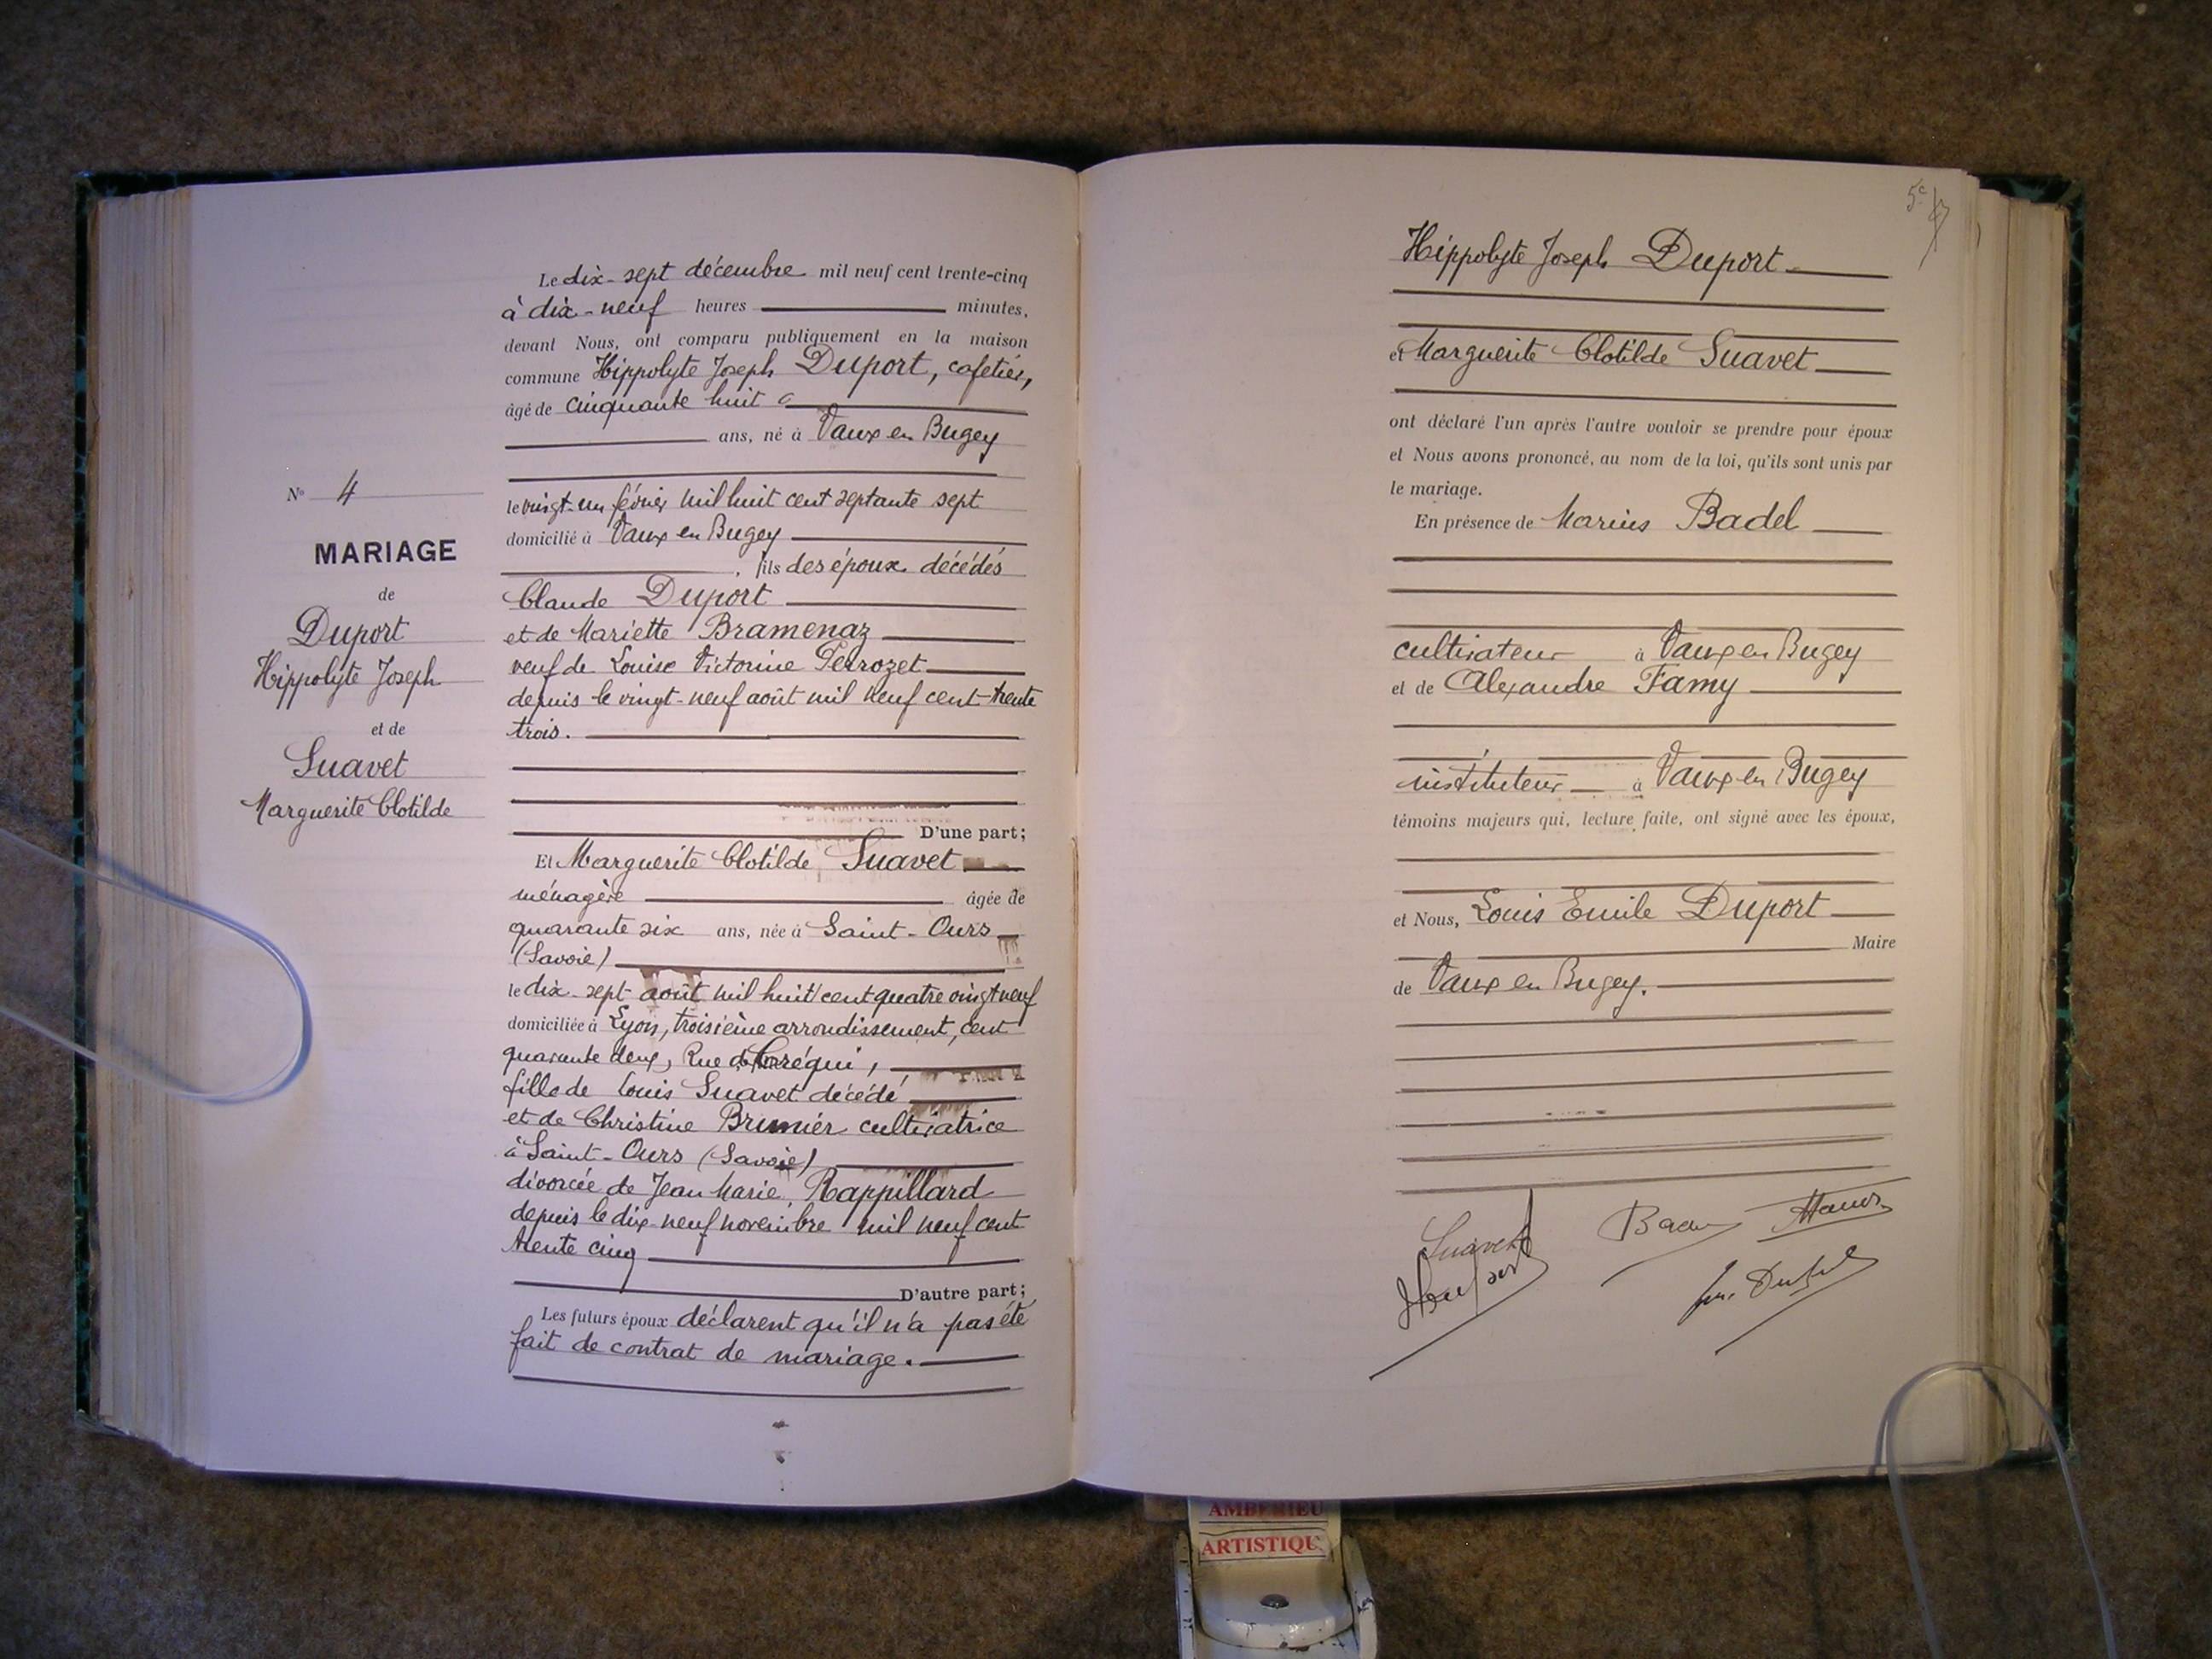 N° 4
MARIAGE
de
Duport
Hippolyte Joseph
et de
Suavet
Marguerite Clotilde
Le dix-sept décembre mil neuf cent trente-cinq
à dix-neuf heures minutes,
devant Nous, ont comparu publiquement en la maison
commune Hippolyte Joseph Duport, cafetier,
âgé de cinquante huit
ans, né à Vaux en Bugey
le vingt-un février mil huit cent septante sept
domicilié à Vaux en Bugey
, fils des époux décédés
Claude Duport
et de Mariette Bramenaz
veuf de Louise Victorine Perrozet
depuis le vingt-neuf août mil neuf cent trente
trois.
D'une part;
Et Marguerite Clotilde Suavet
ménagère âgée de
quarante six ans, née à Saint-Ours
(Savoie)
le dix-sept août mil huit cent quatre vingt neuf
domiciliée à Lyon, troisième arrondissement, cent
quarante deux, Rue de Créqui,
fille de Louis Suavet décédé
et de Christine Brunier cultivatrice
à Saint-Ours (Savoie)
divorcée de Jean Marie Rappillard
depuis le dix-neuf novembre mil neuf cent
trente cinq
D'autre part;
Les futurs époux déclarent qu'il n'a pas été
fait de contrat de mariage.
5e
Hippolyte Joseph Duport
et Marguerite Clotilde Suavet
ont déclaré l'un après l'autre vouloir se prendre pour époux
et Nous avons prononcé, au nom de la loi, qu'ils sont unis par
le mariage.
En présence de Marius Badel
cultivateur à Vaux en Bugey
et de Alexandre Famy
instituteur à Vaux en Bugey
témoins majeurs qui, lecture faite, ont signé avec les époux,
et Nous, Louis Emile Duport
Maire
de Vaux en Bugey.
Suavet
AMBERIEU
ARTISTIQU